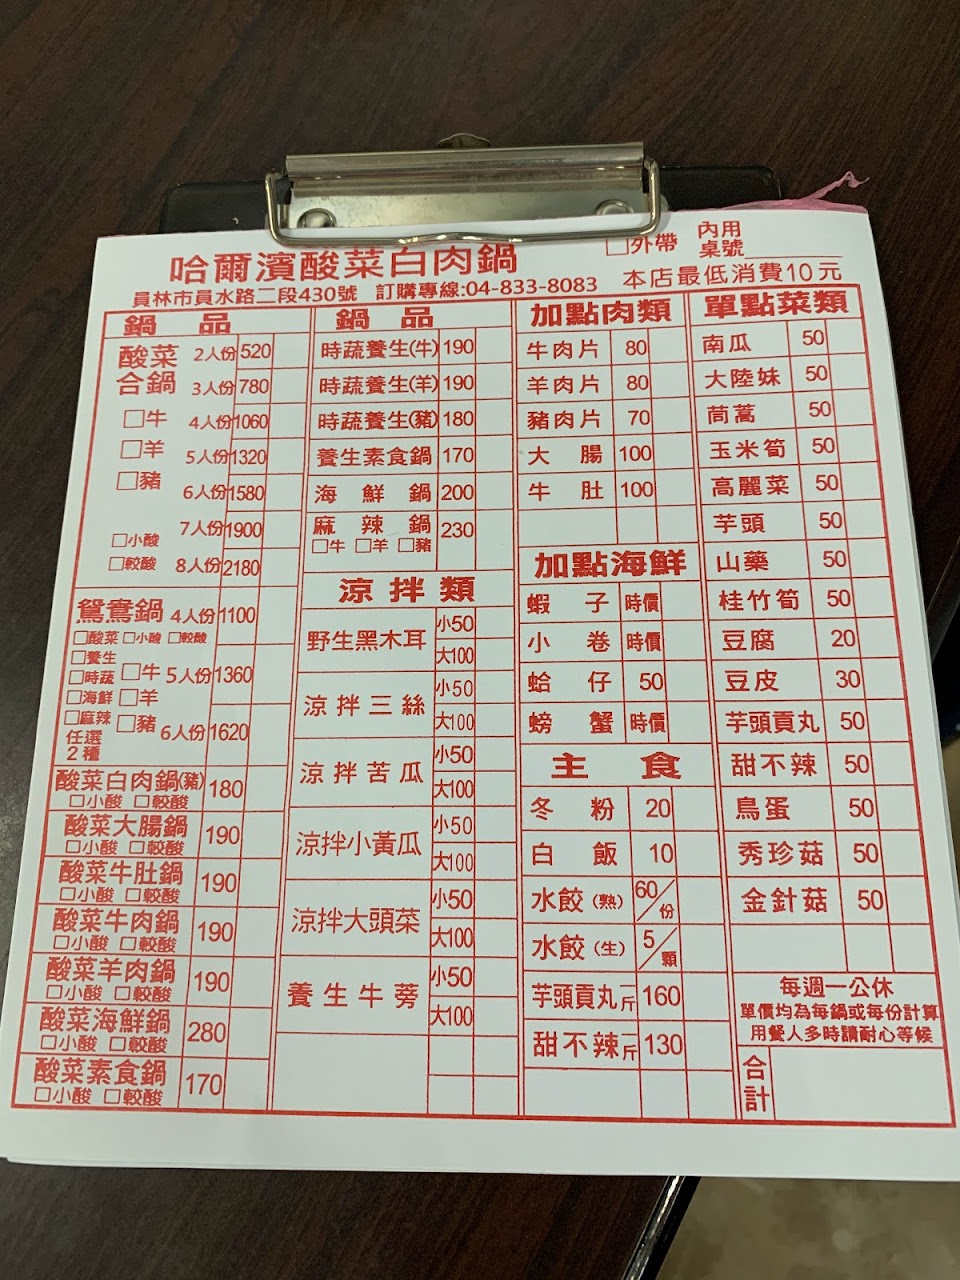 □外帶 內用
桌號
哈爾濱酸菜白肉鍋
員林市員水路二段430號 訂購專線:04-833-8083 本店最低消費10元
鍋品
酸菜合鍋
□牛
□羊
□豬
□小酸
□較酸
2人份 520
3人份 780
4人份 1060
5人份 1320
6人份 1580
7人份 1900
8人份 2180
鴛鴦鍋 4人份 1100
□酸菜 □小酸 □較酸
□養生
□時蔬 □牛 5人份 1360
□海鮮 □羊
□麻辣 □豬 6人份 1620
任選
2種
酸菜白肉鍋(豬) 180
□小酸 □較酸
酸菜大腸鍋 190
□小酸 □較酸
酸菜牛肚鍋 190
□小酸 □較酸
酸菜牛肉鍋 190
□小酸 □較酸
酸菜羊肉鍋 190
□小酸 □較酸
酸菜海鮮鍋 280
□小酸 □較酸
酸菜素食鍋 170
□小酸 □較酸
鍋品
時蔬養生(牛) 190
時蔬養生(羊) 190
時蔬養生(豬) 180
養生素食鍋 170
海鮮鍋 200
麻辣鍋 230
□牛 □羊 □豬
涼拌類
野生黑木耳 小50
大100
涼拌三絲 小50
大100
涼拌苦瓜 小50
大100
涼拌小黃瓜 小50
大100
涼拌大頭菜 小50
大100
養生牛蒡 小50
大100
加點肉類
牛肉片 80
羊肉片 80
豬肉片 70
大腸 100
牛肚 100
加點海鮮
蝦子 時價
小卷 時價
蛤仔 50
螃蟹 時價
主食
冬粉 20
白飯 10
水餃(熟) 60/份
水餃(生) 5/顆
芋頭貢丸一斤 160
甜不辣一斤 130
單點菜類
南瓜 50
大陸妹 50
茼蒿 50
玉米筍 50
高麗菜 50
芋頭 50
山藥 50
桂竹筍 50
豆腐 20
豆皮 30
芋頭貢丸 50
甜不辣 50
鳥蛋 50
秀珍菇 50
金針菇 50
每週一公休
單價均為每鍋或每份計算
用餐人多時請耐心等候
合計